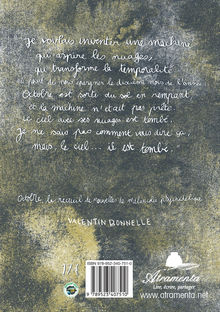 Je voulais inventer une machine
qui aspire les nuages,
qui transforme la temporalité
pour de nous épargner le dixième mois de l'année.
Octobre est sorti du sol en rampant
et la machine n'était pas prête.
le ciel avec ses nuages est tombé.
Je ne sais pas comment vous dire ça,
mais, le ciel... il est tombé.
Octobre, le recueil de nouvelles de
VALENTIN BONNELLE
17€
ISBN 978-952-340-751-0
9 789523 407510
Atramenta
Lire, écrire, partager
www.atramenta.net